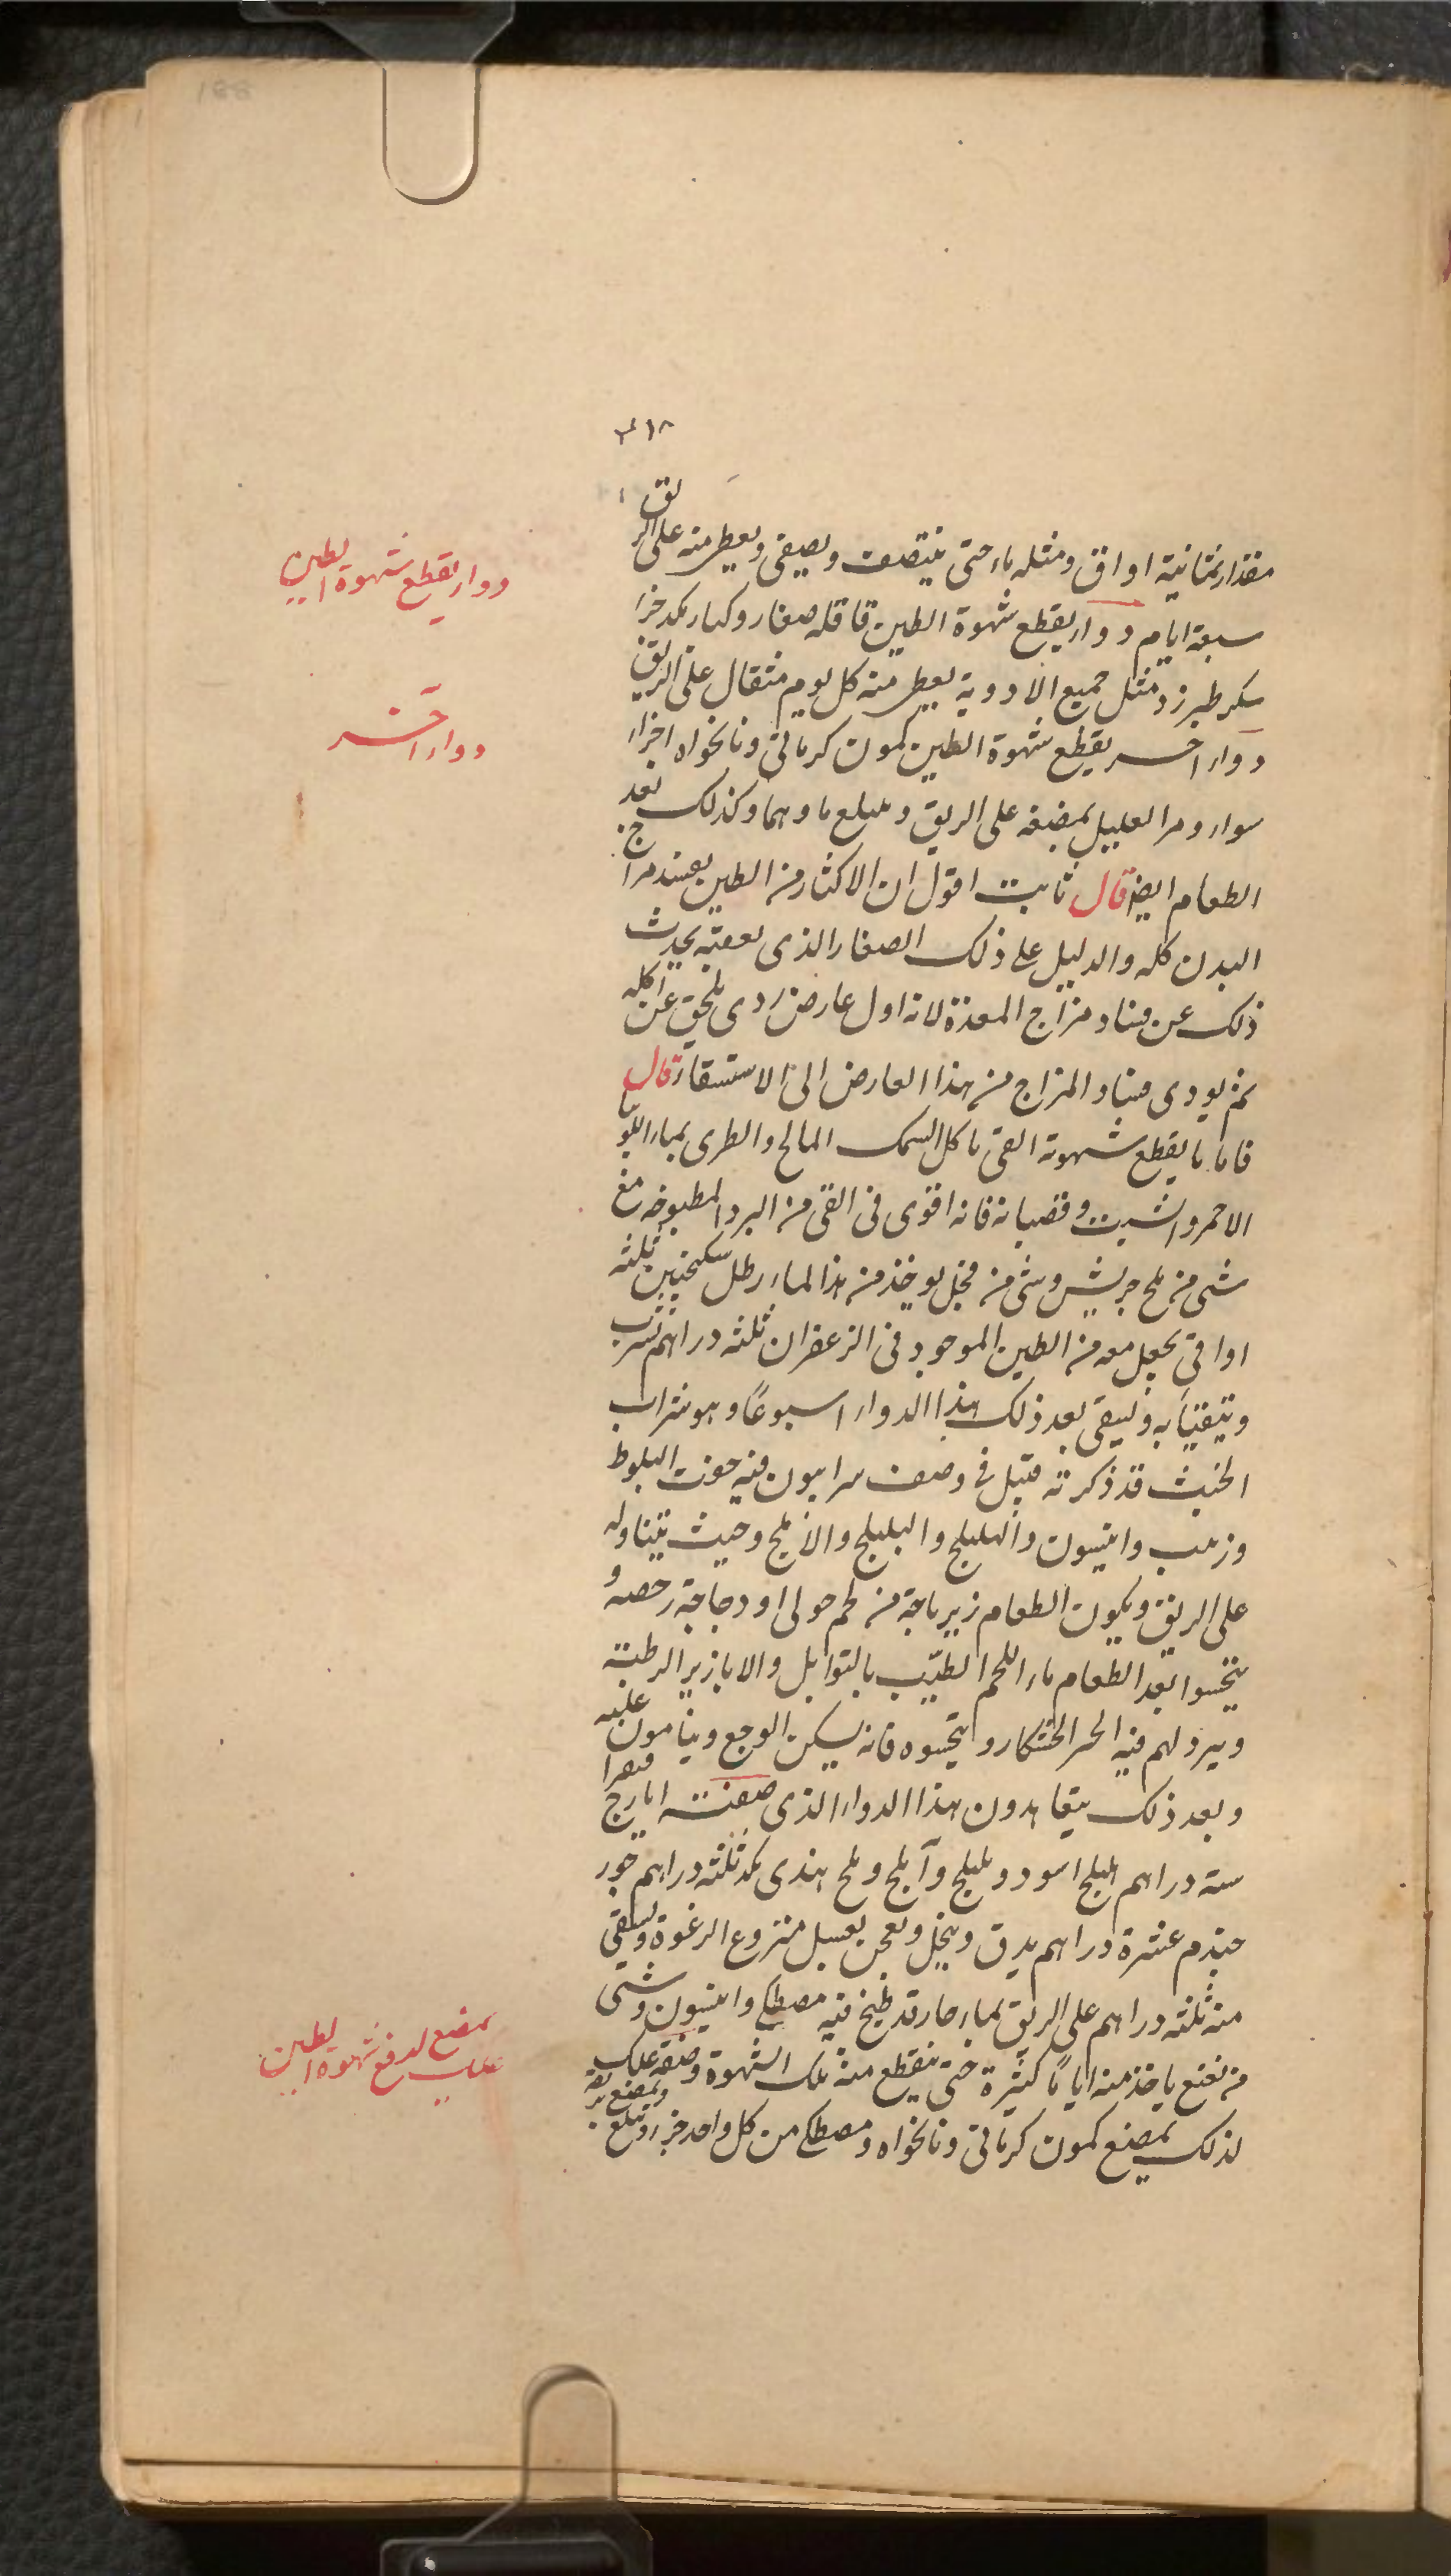 188
٣١٨
مقدار ثمانية اواق ومثله ماء حتى ينتصف ويصفى ويعطى منه على الريق
سبعة ايام دواء يقطع شهوة الطين قاقله صغار وكبار مكد جزا
سكر طبرزد مثل جميع الادوية يعطى منه كل يوم مثقال على الريق
دواء اخر يقطع شهوة الطين كمون كرمانى ونانخواه اجزاء
سواء ومر العليل بمضغه على الريق وببلع ماوهما وكذلك بعد
الطعام ايضا قال ثابت اقول ان الاكثار من الطين يفسد مزاج
البدن كله والدليل على ذلك الصفار الذى يعقبه يحدث
ذلك عن فساد مزاج المعدة لانه اول عارض ردى يلحق عن اكله
ثم يودى فساد المزاج من هذا العارض الى الاستسقاء قال
فاما ما يقطع شهوته القى باكل السمك المالح والطرى بماء اللوبيا
الاحمر والشبت وقضبانه فانه اقوى فى القى من البزر المطبوخه مع
شى من ملح جريش وشى من فجل يوخذ من هذا الماء رطل سكنجبين ثلثه
اواقى يجعل معه من الطين الموجود فى الزعفران ثلثه دراهم يشرب
ويتقيا به ويسقى بعد ذلك هذا الدواء اسبوعًا وهو شراب
الخبث قد ذكرته قبل فى وصف سرابيون فيه جفت البلوط
وزبيب وانيسون والهليلج والبليلج والاملج وخبث يتناوله
على الريق ويكون الطعام زيرباجة من لحم حولى او دجاجة رخصه و
يتحسوا بعد الطعام ماء اللحم المطيّب بالتوابل والابازير الرطبة
ويثرد لهم فيه الخبز الخشكار ويتحسوه فانه يسكن الوجع وينامون عليه
وبعد ذلك يتعاهدون هذا الدواء الذى صفته ايارج فيقرا
ستة دراهم هليلج اسود وبليلج وآملج وملح هندى مكد ثلثه دراهم جوز
جندم عشرة دراهم يدق وينخل ويعجن بعسل منزوع الرغوة ويسقى
منه ثلثه دراهم على الريق بماء حار قد طبخ فيه مصطكى وانيسون وشى
من نعنع ياخذ منه اياما كثيرة حتى ينقطع منه تلك الشهوة وصفة علك
لذلك يمضغ كمون كرمانى ونانخواه ومصطكى من كل واحد جزء ويمضغ ريقه ويبلع
دواء يقطع شهوة الطين
دواء اخر
علك يمضغ لدفع شهوة الطين